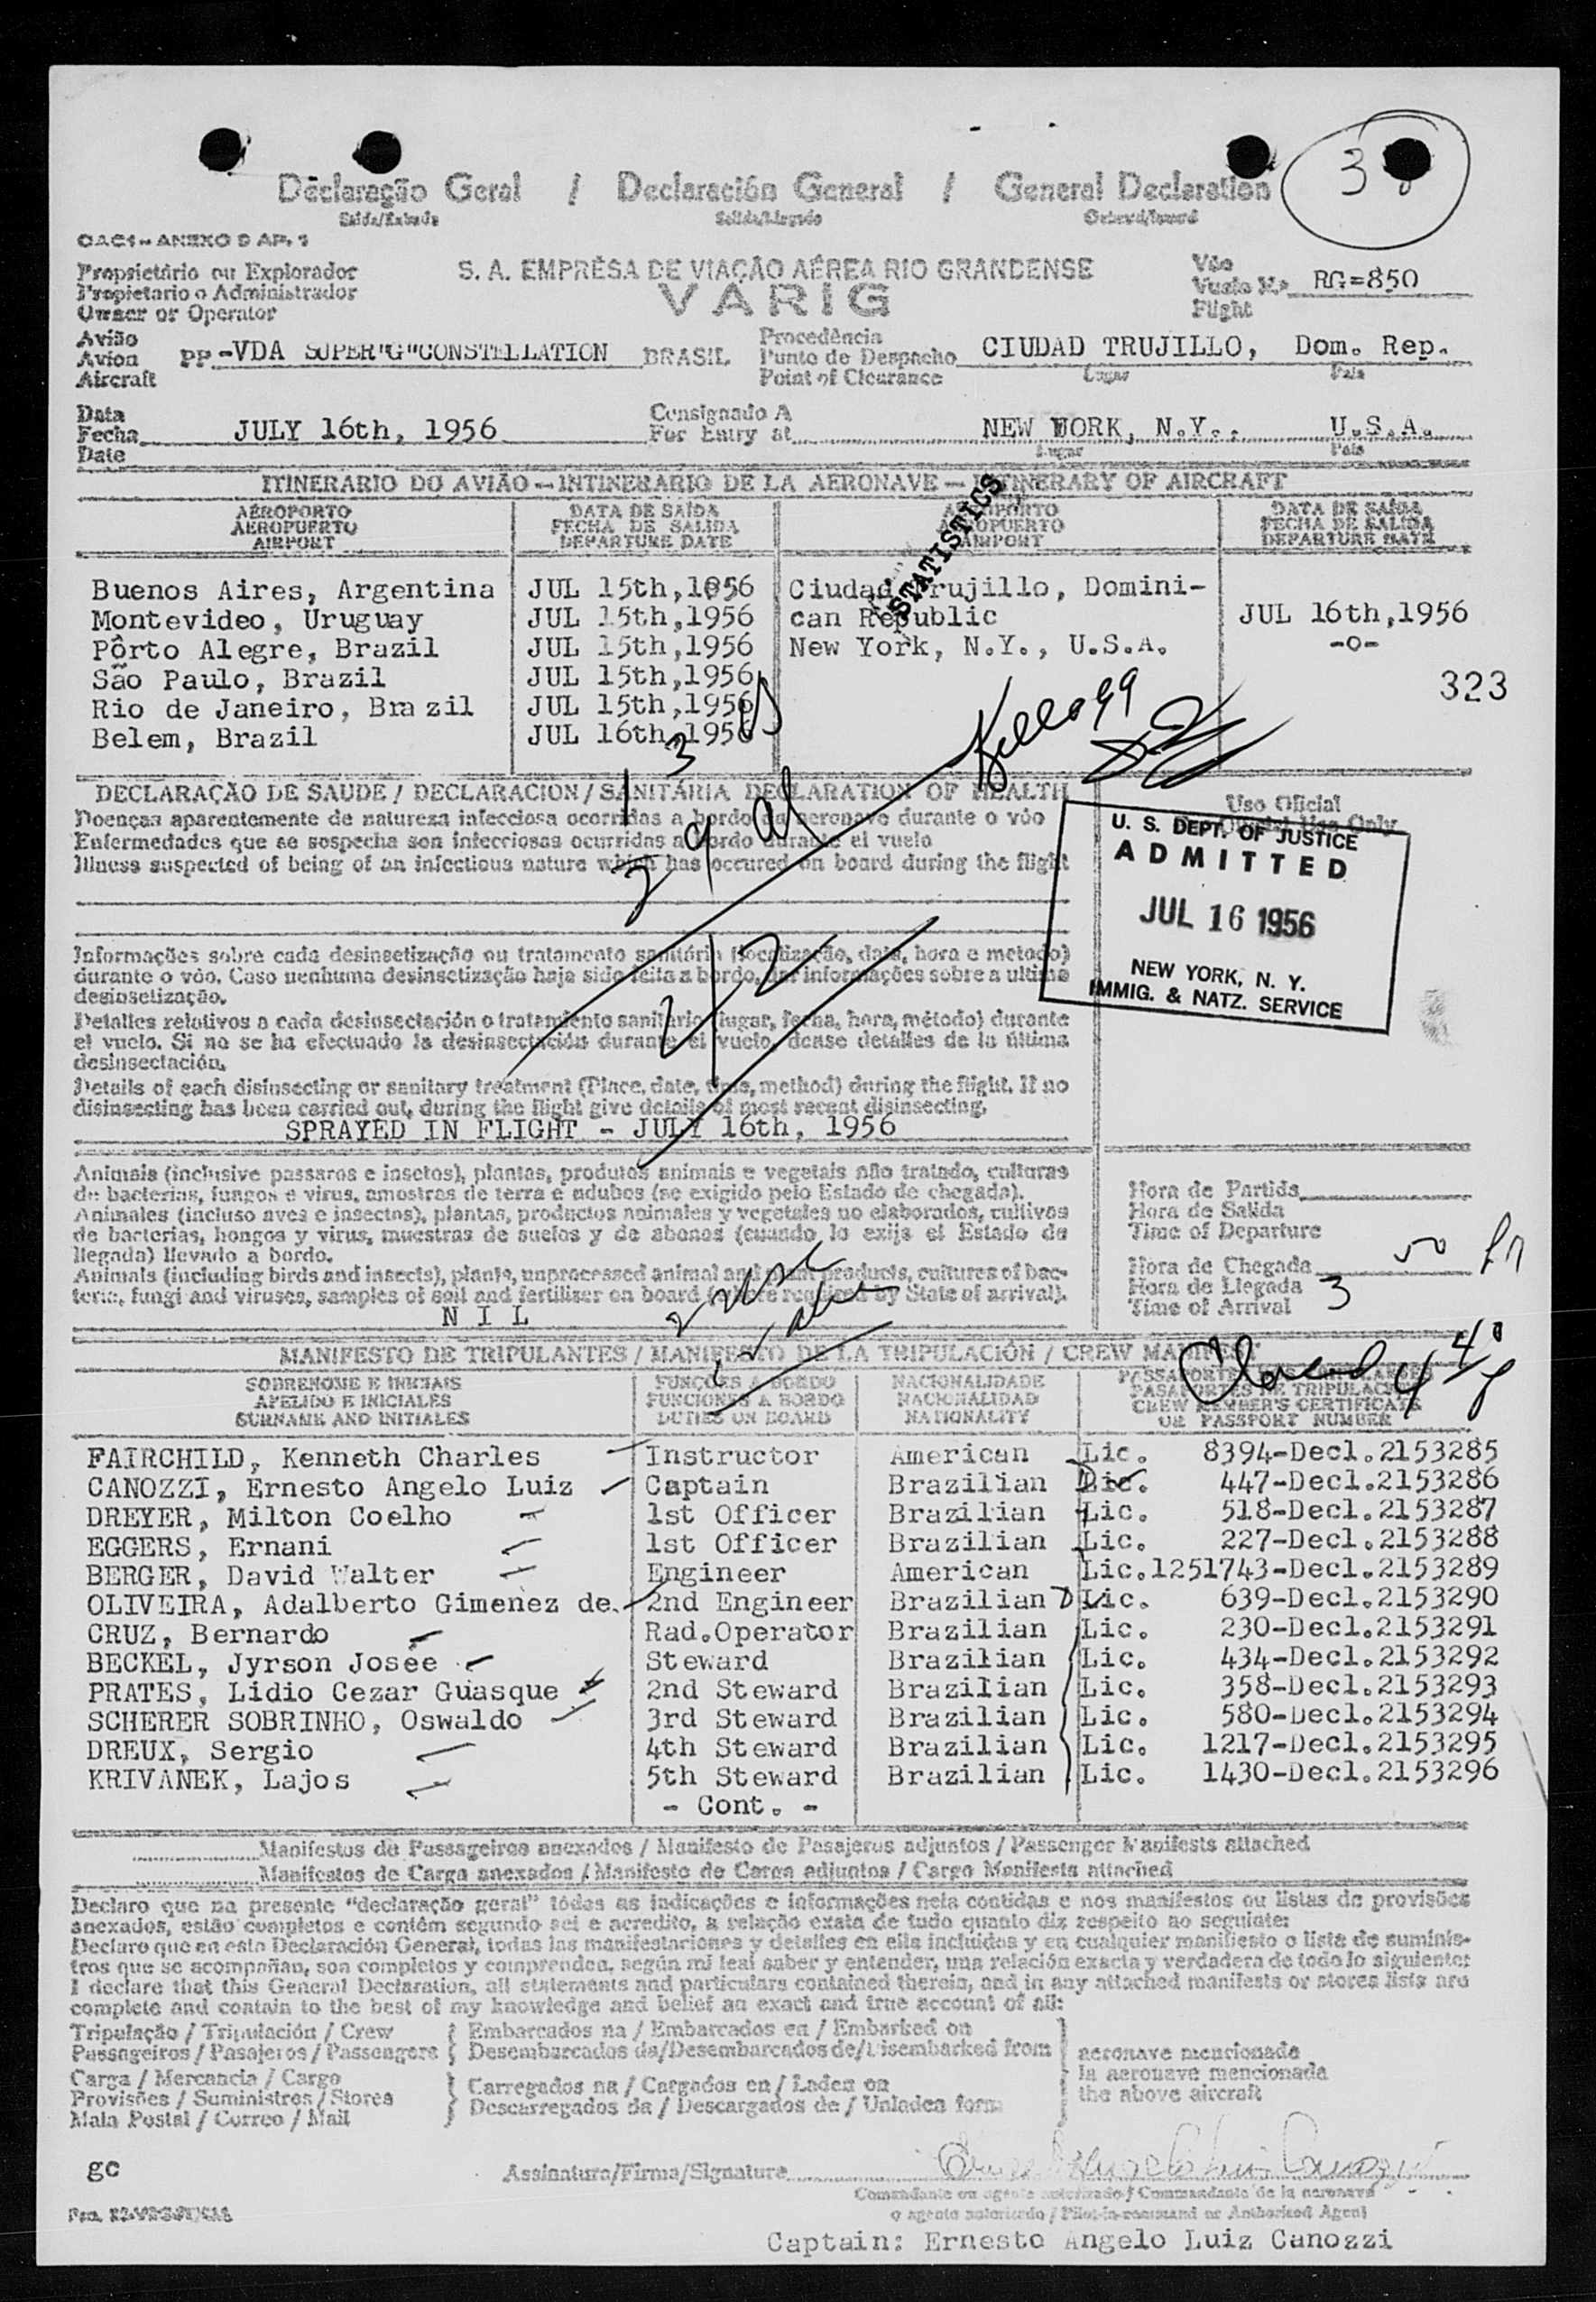 Declaração Geral / Declaración General / General Declaration
Saída/Entrada Salida/Llegada Outward/Inward
OACI - ANEXO 9 AP. 1
Proprietário ou Explorador
Propietario o Administrador
Owner or Operator
S. A. EMPRÊSA DE VIAÇÃO AÉREA RIO GRANDENSE
VARIG
Vôo
Vuelo N.º RG=850
Flight
Avião
Avion PP-VDA SUPER"G"CONSTELLATION BRASIL
Aircraft
Procedência
Punto de Despacho CIUDAD TRUJILLO, Dom. Rep.
Point of Clearance Lugar País
Data
Fecha JULY 16th, 1956
Date
Consignado A
For Entry at NEW YORK, N.Y. U.S.A.
Lugar País
ITINERARIO DO AVIÃO — INTINERARIO DE LA AERONAVE — ITINERARY OF AIRCRAFT
AEROPORTO DATA DE SAÍDA AEROPORTO DATA DE SAÍDA
AEROPUERTO FECHA DE SALIDA AEROPUERTO FECHA DE SALIDA
AIRPORT DEPARTURE DATE AIRPORT DEPARTURE DATE
STATISTICS
Buenos Aires, Argentina JUL 15th,1956 Ciudad Trujillo, Domini-
Montevideo, Uruguay JUL 15th,1956 can Republic JUL 16th,1956
Pôrto Alegre, Brazil JUL 15th,1956 New York, N.Y., U.S.A. -o-
São Paulo, Brazil JUL 15th,1956
323
Rio de Janeiro, Brazil JUL 15th,1956
Belem, Brazil JUL 16th,1956
Kellogg
DECLARAÇÃO DE SAUDE / DECLARACION / SANITÁRIA DECLARATION OF HEALTH
Doenças aparentemente de natureza infecciosa ocorridas a bordo da aeronave durante o vôo
Enfermedades que se sospecha son infecciosas ocurridas a bordo durante el vuelo
Illness suspected of being of an infectious nature which has occured on board during the flight
Uso Oficial
Official Use Only
U. S. DEPT. OF JUSTICE
ADMITTED
JUL 16 1956
NEW YORK, N. Y.
IMMIG. & NATZ. SERVICE
Informações sobre cada desinsetização ou tratamento sanitário (localização, data, hora e metodo)
durante o vôo. Caso nenhuma desinsetização haja sido feita a bordo, dar informações sobre a ultima
desinsetização.
Detalles relativos a cada desinsectación o tratamiento sanitario (lugar, fecha, hora, método) durante
el vuelo. Si no se ha efectuado la desinsectación durante el vuelo, dense detalles de la última
desinsectación.
Details of each disinsecting or sanitary treatment (Place, date, time, method) during the flight. If no
disinsecting has been carried out, during the flight give details of most recent disinsecting.
SPRAYED IN FLIGHT - JULY 16th, 1956
Animais (inclusive passaros e insetos), plantas, produtos animais e vegetais não tratado, culturas
de bacterias, fungos e virus, amostras de terra e adubos (se exigido pelo Estado de chegada).
Animales (incluso aves e insectos), plantas, productos animales y vegetales no elaborados, cultivos
de bacterias, hongos y virus, muestras de suelos y de abonos (cuando lo exija el Estado de
llegada) llevado a bordo.
Animals (including birds and insects), plants, unprocessed animal and plant products, cultures of bac-
teria, fungi and viruses, samples of soil and fertiliser on board (where required by State of arrival).
NIL
Hora de Partida
Hora de Salida
Time of Departure
Hora de Chegada
Hora de Llegada 3 50
Time of Arrival
MANIFESTO DE TRIPULANTES / MANIFESTO DE LA TRIPULACIÓN / CREW MANIFEST
SOBRENOME E INICIAIS FUNÇÕES A BORDO NACIONALIDADE
APELIDO E INICIALES FUNCIONES A BORDO NACIONALIDAD PASAPORTES DE TRIPULACION
SURNAME AND INITIALES DUTIES ON BOARD NATIONALITY CREW MEMBER'S CERTIFICATE
OR PASSPORT NUMBER
FAIRCHILD, Kenneth Charles Instructor American Lic. 8394-Decl.2153285
CANOZZI, Ernesto Angelo Luiz Captain Brazilian Lic. 447-Decl.2153286
DREYER, Milton Coelho 1st Officer Brazilian Lic. 518-Decl.2153287
EGGERS, Ernani 1st Officer Brazilian Lic. 227-Decl.2153288
BERGER, David Walter Engineer American Lic.1251743-Decl.2153289
OLIVEIRA, Adalberto Gimenez de. 2nd Engineer Brazilian Lic. 639-Decl.2153290
CRUZ, Bernardo Rad.Operator Brazilian Lic. 230-Decl.2153291
BECKEL, Jyrson Josée Steward Brazilian Lic. 434-Decl.2153292
PRATES, Lidio Cezar Guasque 2nd Steward Brazilian Lic. 358-Decl.2153293
SCHERER SOBRINHO, Oswaldo 3rd Steward Brazilian Lic. 580-Decl.2153294
DREUX, Sergio 4th Steward Brazilian Lic. 1217-Decl.2153295
KRIVANEK, Lajos 5th Steward Brazilian Lic. 1430-Decl.2153296
- Cont. -
Manifestos de Passageiros anexados / Manifesto de Pasajeros adjuntos / Passenger Manifests attached
Manifestos de Carga anexados / Manifesto de Carga adjuntos / Cargo Manifests attached
Declaro que na presente "declaração geral" tôdas as indicações e informações nela contidas e nos manifestos ou listas de provisões
anexados, estão completos e contêm segundo sei e acredito, a relação exata de tudo quanto diz respeito ao seguinte:
Declaro que en esta Declaración General, todas las manifestaciones y detalles en ella incluidos y en cualquier manifiesto o lista de suminis-
tros que se acompañan, son completos y comprenden, según mi leal saber y entender, una relación exacta y verdadera de todo lo siguiente:
I declare that this General Declaration, all statements and particulars contained therein, and in any attached manifests or stores lists are
complete and contain to the best of my knowledge and belief an exact and true account of all:
Tripulação / Tripulación / Crew Embarcados na / Embarcados en / Embarked on
Passageiros / Pasajeros / Passengers Desembarcados da/Desembarcados de/Disembarked from aeronave mencionada
Carga / Mercancia / Cargo la aeronave mencionada
Provisões / Suministros / Stores Carregados na / Cargados en / Laden on the above aircraft
Mala Postal / Correo / Mail Descarregados da / Descargados de / Unladen form
gc Assinatura/Firma/Signature
Comandante ou agente autorizado / Commandante de la aeronave
o agente autorizado / Pilot-in-command or Authorised Agent
Captain: Ernesto Angelo Luiz Canozzi